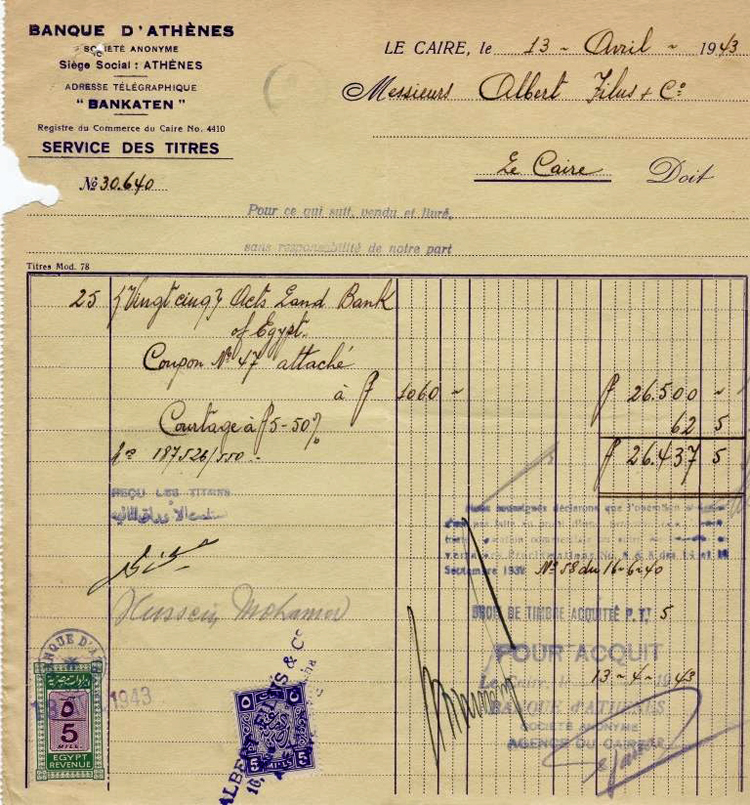 BANQUE D'ATHÈNES
SOCIÉTÉ ANONYME
Siège Social : ATHÈNES
ADRESSE TÉLÉGRAPHIQUE
" BANKATEN "
Registre du Commerce du Caire No. 4410
SERVICE DES TITRES
No 30.640
LE CAIRE, le 13 - Avril - 1943
Messieurs Albert & Co
Le Caire Doit
Pour ce qui suit, vendu et livré,
sans responsabilité de notre part
Titres Mod. 78
25 (Vingt cinq) Acts Land Bank
of Egypt.
Coupon No 47 attaché
à 1060 - 26.500 -
Courtage à 5-50% 62 5
187526/550 - 26.437 5
REÇU LES TITRES
déclarons que l'opération
Proclamations No.
Septembre No 58 du 16-6-40
DROIT DE TIMBRE ACQUITTÉ P.T. 5
Hussein Mohamed
POUR ACQUIT
Le Caire, 13-4-1943
BANQUE D'ATHÈNES
SOCIÉTÉ ANONYME
AGENCE DU CAIRE
BANQUE D'A
1943
٥
5
MILL.
EGYPT
REVENUE
ALBERT & Co
٥ ٥
5 MILLS 5